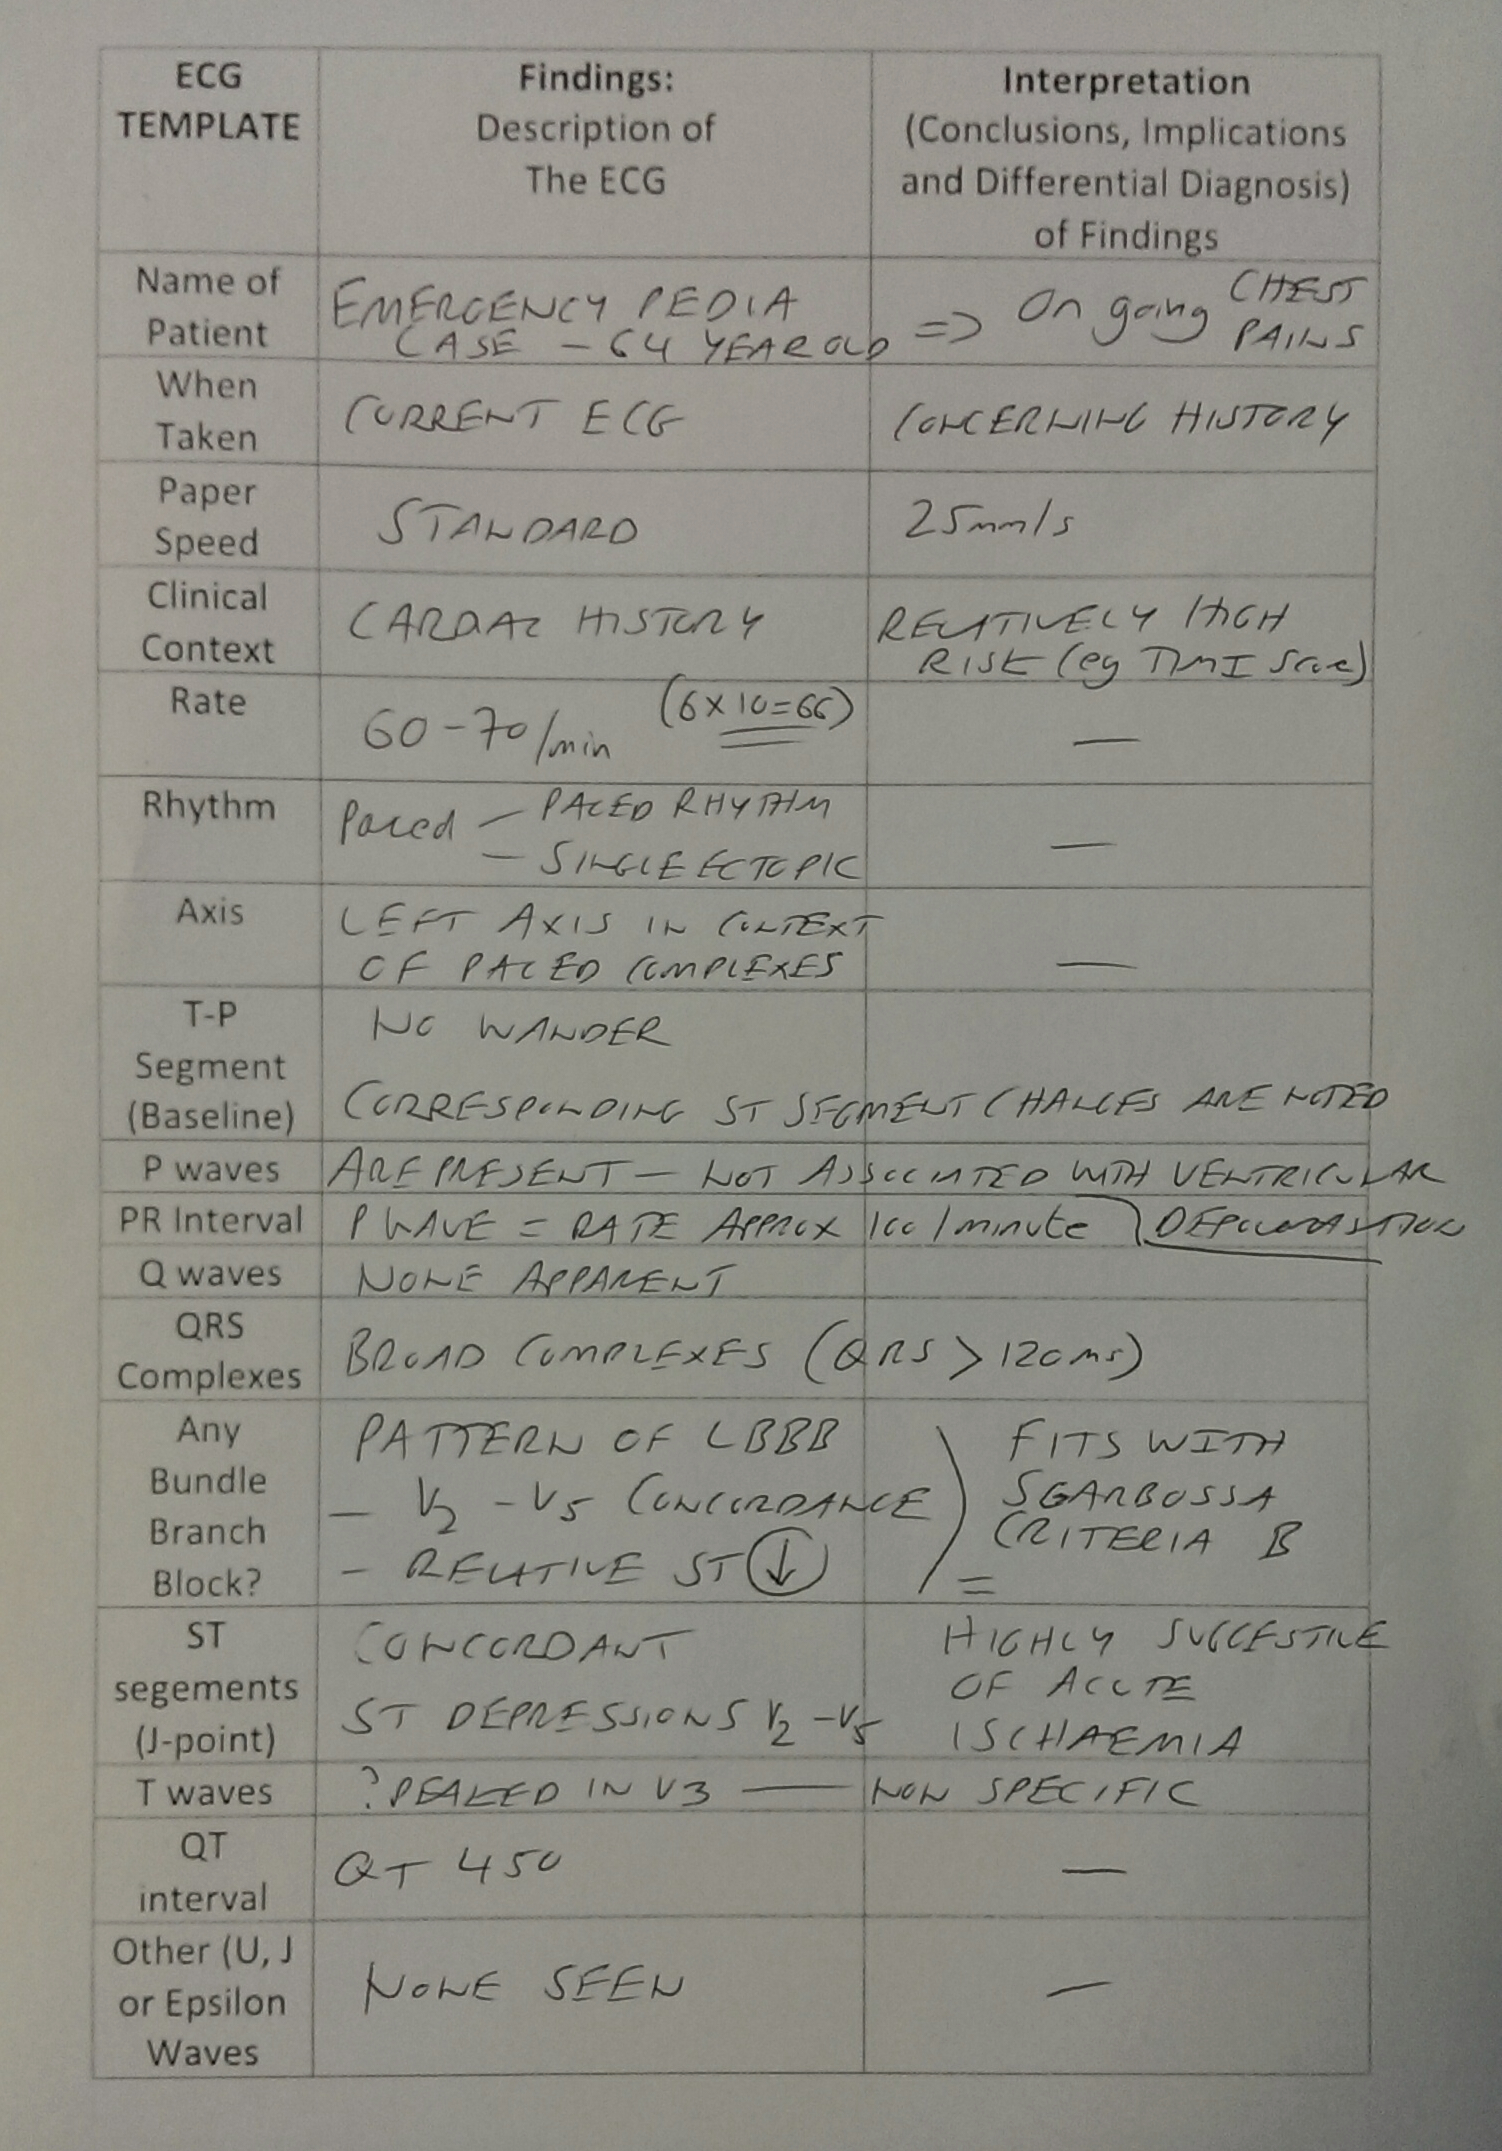 ECG
TEMPLATE
Findings:
Description of
The ECG
Interpretation
(Conclusions, Implications
and Differential Diagnosis)
of Findings
Name of
Patient
EMERGENCY PEDIA
CASE - 64 YEAR OLD
=> On going CHEST
PAINS
When
Taken
CURRENT ECG
CONCERNING HISTORY
Paper
Speed
STANDARD
25mm/s
Clinical
Context
CARDIAC HISTORY
RELATIVELY HIGH
RISK (eg TIMI Score)
Rate
60-70/min (6x10=66)
—
Rhythm
Paced - PACED RHYTHM
- SINGLE ECTOPIC
—
Axis
LEFT AXIS IN CONTEXT
OF PACED COMPLEXES
—
T-P
Segment
(Baseline)
NO WANDER
CORRESPONDING ST SEGMENT CHANGES ARE NOTED
P waves
ARE PRESENT - NOT ASSOCIATED WITH VENTRICULAR
PR Interval
P WAVE = RATE APPROX 100/minute } DEPOLARISATION
Q waves
NONE APPARENT
QRS
Complexes
BROAD COMPLEXES (QRS > 120ms)
Any
Bundle
Branch
Block?
PATTERN OF LBBB
- V2 - V5 CONCORDANCE
- RELATIVE ST ↓
) FITS WITH
SGARBOSSA
CRITERIA B
=
ST
segements
(J-point)
CONCORDANT
ST DEPRESSIONS V2 - V5
HIGHLY SUGGESTIVE
OF ACUTE
ISCHAEMIA
T waves
? PEAKED IN V3 — NON SPECIFIC
QT
interval
QT 450
—
Other (U, J
or Epsilon
Waves
NONE SEEN
—